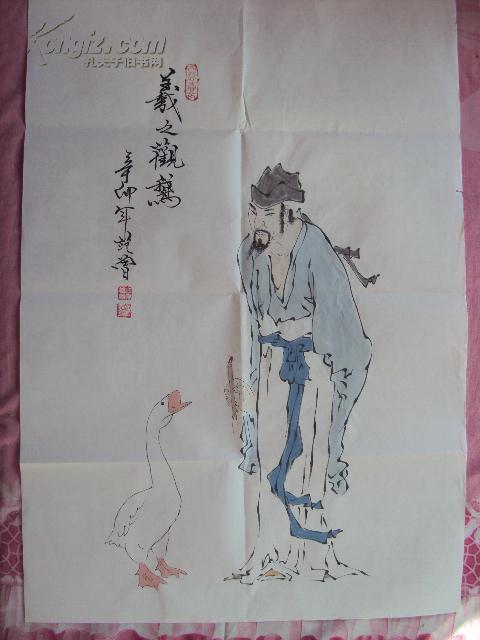 羲之觀鵞
辛卯年范曾
Kongfz.com
孔夫子旧书网